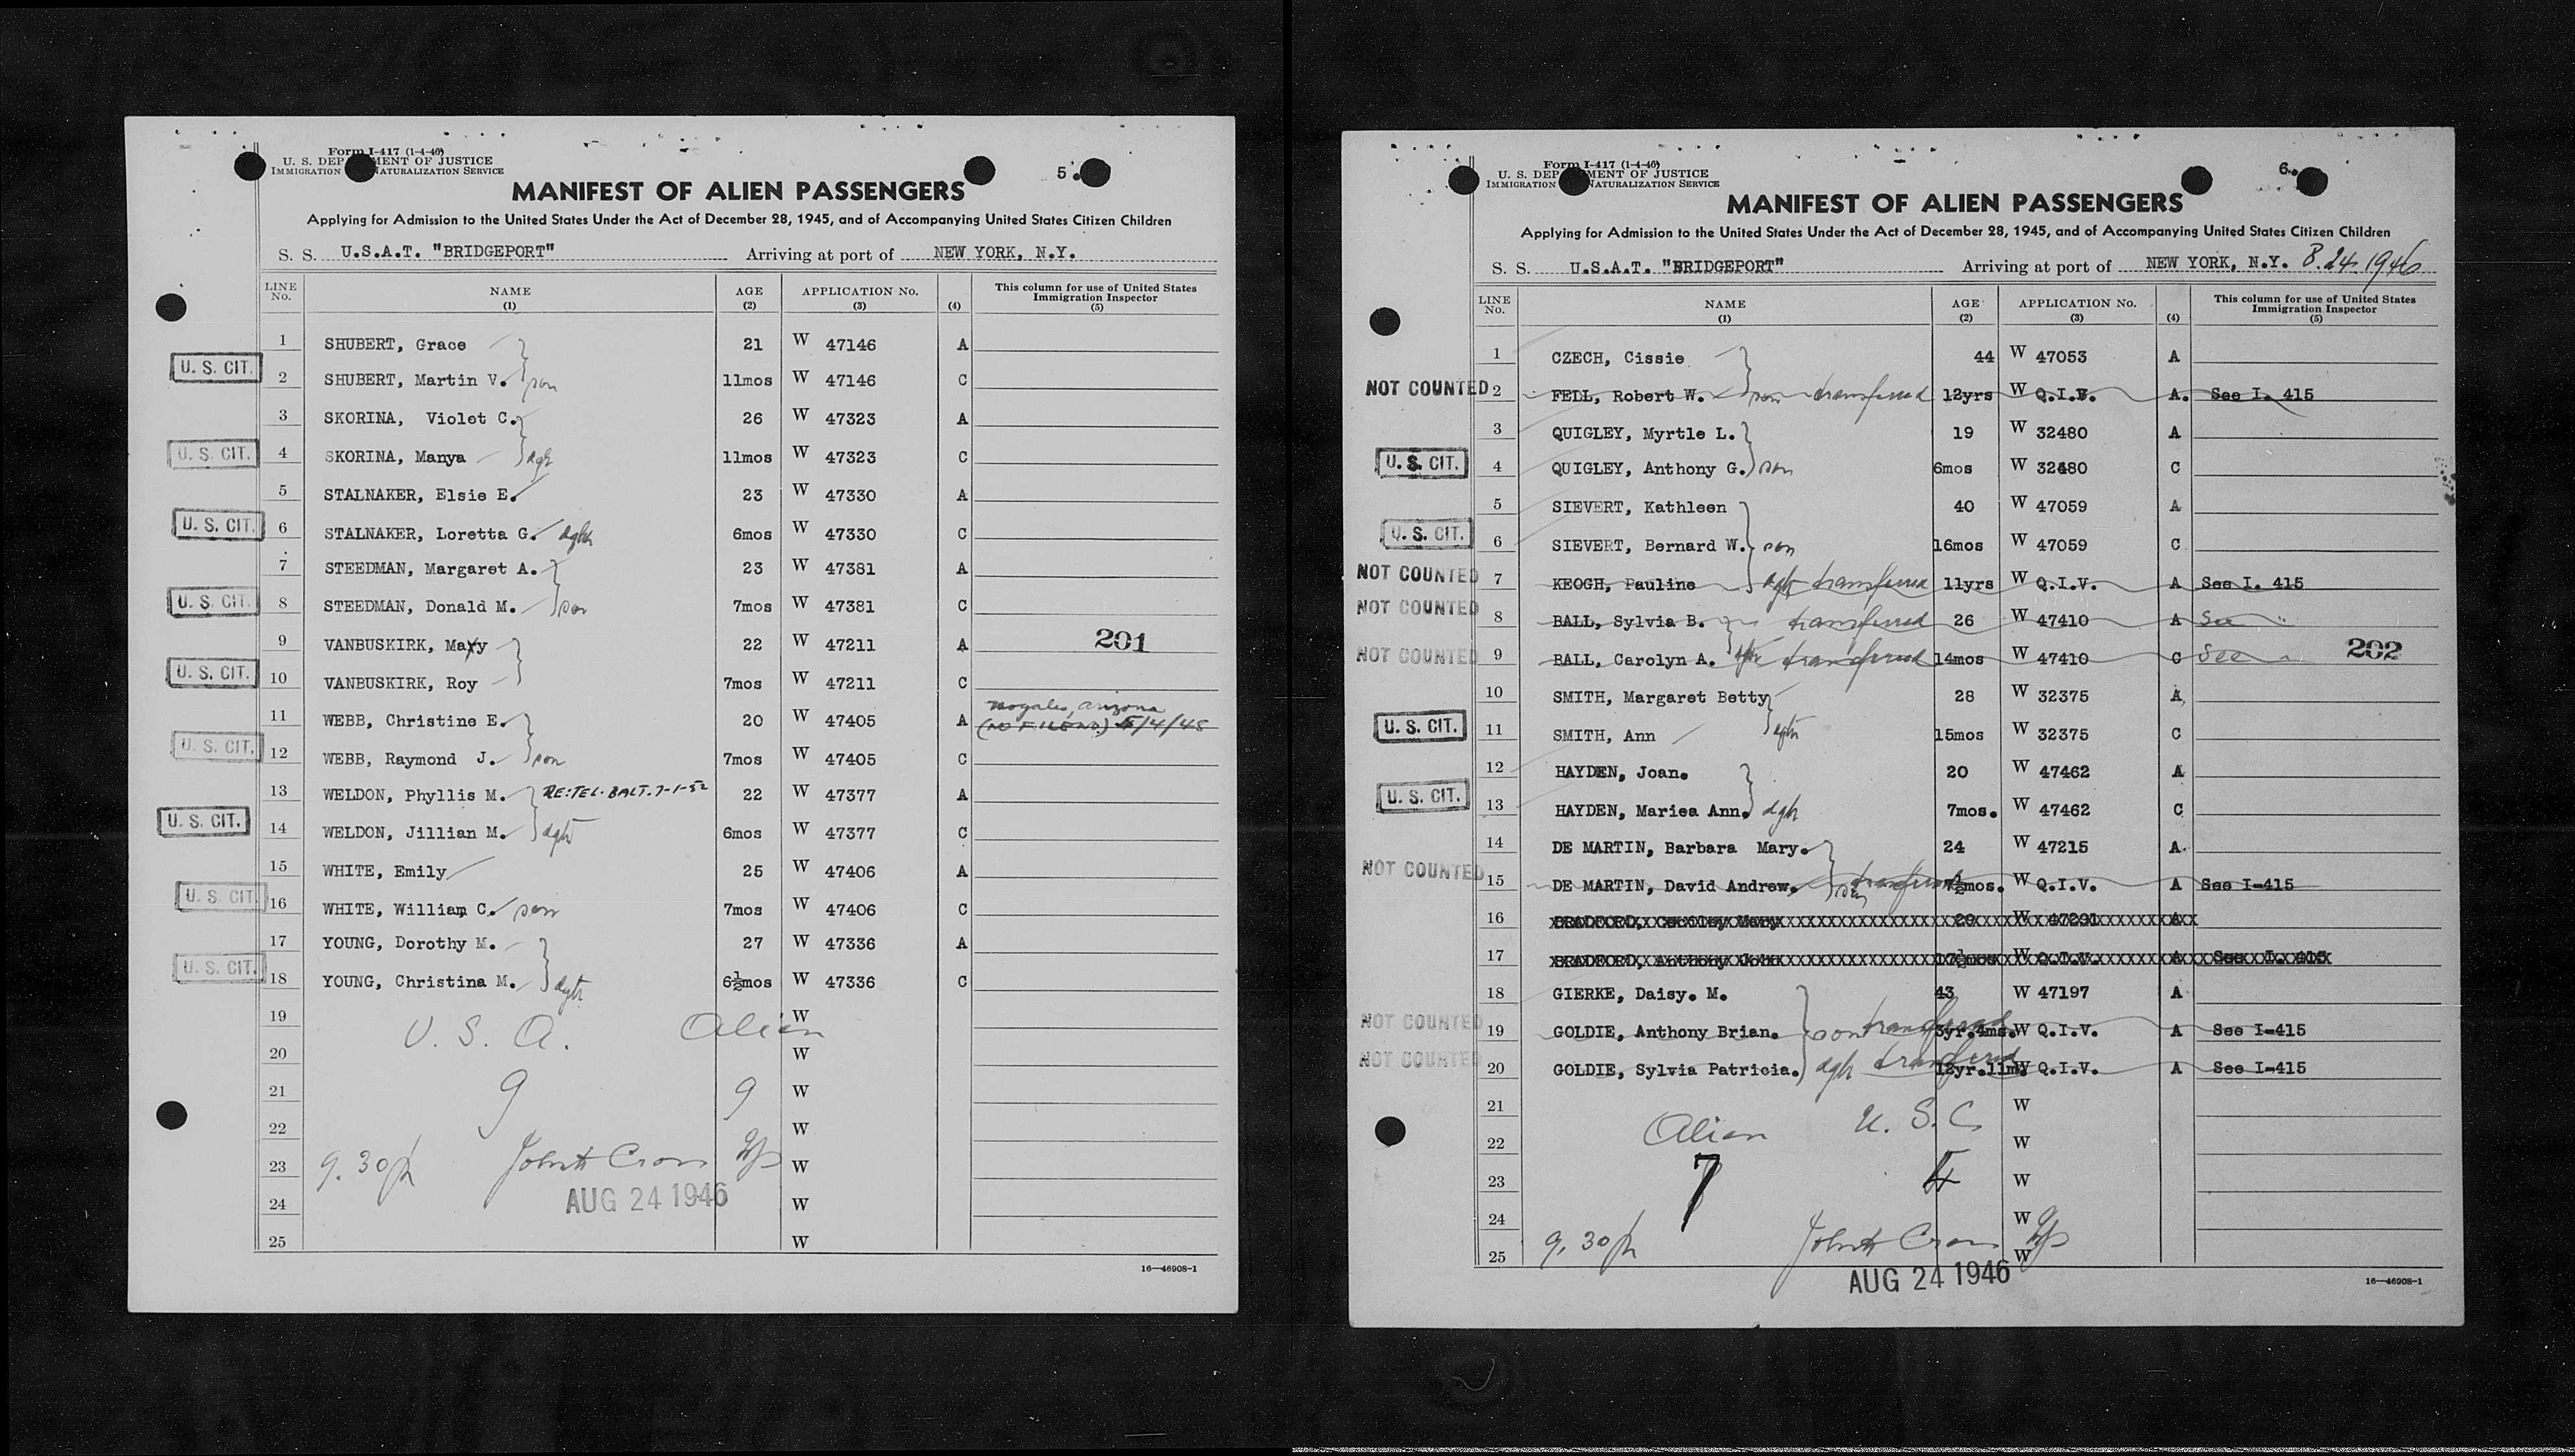 Form I-417 (1-4-46)
U. S. DEP MENT OF JUSTICE
IMMIGRATION NATURALIZATION SERVICE
5.
MANIFEST OF ALIEN PASSENGERS
Applying for Admission to the United States Under the Act of December 28, 1945, and of Accompanying United States Citizen Children
S. S. U.S.A.T. "BRIDGEPORT" Arriving at port of NEW YORK, N.Y.
LINE No. NAME (1) AGE (2) APPLICATION No. (3) (4) This column for use of United States Immigration Inspector (5)
1 SHUBERT, Grace 21 W 47146 A
U. S. CIT. 2 SHUBERT, Martin V. son 11mos W 47146 C
3 SKORINA, Violet C. 26 W 47323 A
U. S. CIT. 4 SKORINA, Manya dgh 11mos W 47323 C
5 STALNAKER, Elsie E. 23 W 47330 A
U. S. CIT. 6 STALNAKER, Loretta G. dghtr 6mos W 47330 C
7 STEEDMAN, Margaret A. 23 W 47381 A
U. S. CIT. 8 STEEDMAN, Donald M. son 7mos W 47381 C
9 VANBUSKIRK, Mary 22 W 47211 A 201
U. S. CIT. 10 VANBUSKIRK, Roy 7mos W 47211 C
11 WEBB, Christine E. 20 W 47405 A Nogales, Arizona (NO FILE NO.) 5/4/48
U. S. CIT. 12 WEBB, Raymond J. son 7mos W 47405 C
13 WELDON, Phyllis M. RE:TEL. BALT. 7-1-52 22 W 47377 A
U. S. CIT. 14 WELDON, Jillian M. dght 6mos W 47377 C
15 WHITE, Emily 25 W 47406 A
U. S. CIT. 16 WHITE, William C. son 7mos W 47406 C
17 YOUNG, Dorothy M. 27 W 47336 A
U. S. CIT. 18 YOUNG, Christina M. dghtr 6½mos W 47336 C
19 U. S. A. Alien W
20 W
21 9 9 W
22 W
23 9.30 John Cross W
24 AUG 24 1946 W
25 W
16—46908-1
Form I-417 (1-4-46)
U. S. DEP MENT OF JUSTICE
IMMIGRATION NATURALIZATION SERVICE
6.
MANIFEST OF ALIEN PASSENGERS
Applying for Admission to the United States Under the Act of December 28, 1945, and of Accompanying United States Citizen Children
S. S. U.S.A.T. "BRIDGEPORT" Arriving at port of NEW YORK, N.Y. 8.24.1946
LINE No. NAME (1) AGE (2) APPLICATION No. (3) (4) This column for use of United States Immigration Inspector (5)
1 CZECH, Cissie 44 W 47053 A
NOT COUNTED 2 FELL, Robert W. son transferred 12yrs W Q.I.V. A. See I. 415
3 QUIGLEY, Myrtle L. 19 W 32480 A
U. S. CIT. 4 QUIGLEY, Anthony G. son 6mos W 32480 C
5 SIEVERT, Kathleen 40 W 47059 A
U. S. CIT. 6 SIEVERT, Bernard W. son 16mos W 47059 C
NOT COUNTED 7 KEOGH, Pauline dgh transferred 11yrs W Q.I.V. A See I. 415
NOT COUNTED 8 BALL, Sylvia B. transferred 26 W 47410 A See "
NOT COUNTED 9 BALL, Carolyn A. transferred 14mos W 47410 C See " 202
10 SMITH, Margaret Betty 28 W 32375 A
U. S. CIT. 11 SMITH, Ann dghtr 15mos W 32375 C
12 HAYDEN, Joan. 20 W 47462 A
U. S. CIT. 13 HAYDEN, Mariea Ann. dgh 7mos. W 47462 C
14 DE MARTIN, Barbara Mary. 24 W 47215 A
NOT COUNTED 15 DE MARTIN, David Andrew. son transferred 7½mos. W Q.I.V. A See I-415
16 BRADFORD, Mary 20 W 47291 A
17 BRADFORD, Anthony John 17½mos W Q.I.V. A See I. 415
18 GIERKE, Daisy. M. 43 W 47197 A
NOT COUNTED 19 GOLDIE, Anthony Brian. son transferred 3yr.4ms. W Q.I.V. A See I-415
NOT COUNTED 20 GOLDIE, Sylvia Patricia. dgh transferred 12yr.11m. W Q.I.V. A See I-415
21 W
22 Alien U. S. C. W
23 7 5 W
24 W
25 9.30 John Cross W
AUG 24 1946
16—46908-1